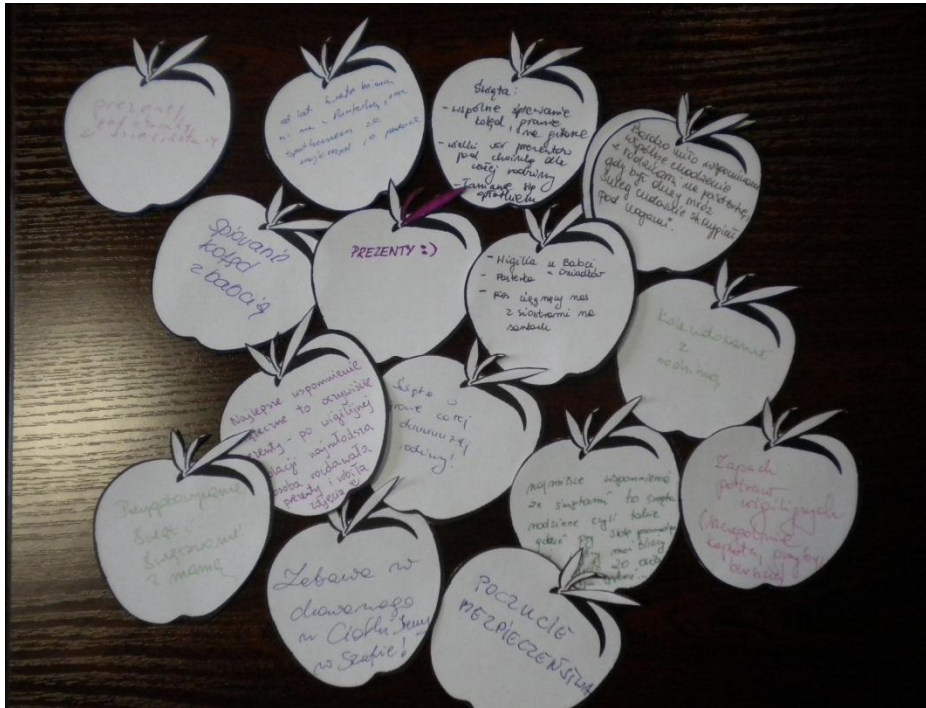 prezenty
od lat
spotkaniem ze
Święta:
- wspólne śpiewanie
kolęd, granie
na gitarze
- wielki wór prezentów
pod choinką dla
całej rodziny
- łamanie się
opłatkiem
Bardzo miło wspominam
wspólne chodzenie
z rodzicami na pasterkę,
gdy był duży mróz
śnieg cudownie skrzypiał
pod nogami.
śpiewanie
kolęd
z babcią
PREZENTY :)
- Wigilia u Babci
- Pasterka u Dziadków
- pies ciągnący nas
z siostrami na
sankach
Kolędowanie
z
rodziną
Najlepsze wspomnienie
to oczywiście
- po wigilijnej
najmłodsza
osoba rozdawała
prezenty i robiła
zdjęcia
Święta w
gronie całej
rodziny!
najmilsze wspomnienia
ze świętami to święta
rodzinne czyli takie
gdzie przy stole
20 osób
Zapach
potraw
wigilijnych
(szczególnie
kapusta, grzyby
barszcz)
Przygotowywanie
Świąt
z mamą
Zabawa w
chowanego
w
w Szafie!
POCZUCIE
BEZPIECZEŃSTWA